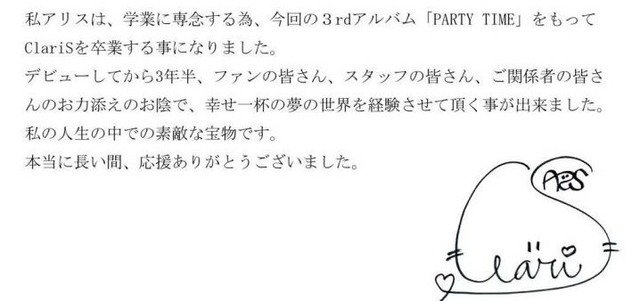 私アリスは、学業に専念する為、今回の３rdアルバム「PARTY TIME」をもって
ClariSを卒業する事になりました。
デビューしてから3年半、ファンの皆さん、スタッフの皆さん、ご関係者の皆さ
んのお力添えのお陰で、幸せ一杯の夢の世界を経験させて頂く事が出来ました。
私の人生の中での素敵な宝物です。
本当に長い間、応援ありがとうございました。
Clari